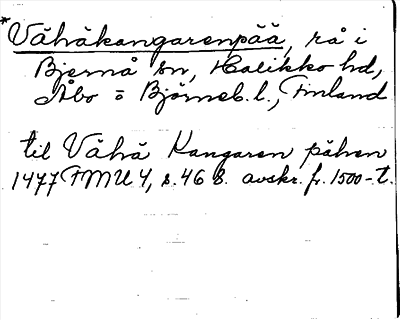 *Vähäkangarenpää, rå i
Bjernå sn, Halikko hd,
Åbo o Björneb. l., Finland
til Vähä Kangaren pähen
1477 FMU 4, s. 46 8. avskr. fr. 1500-t.